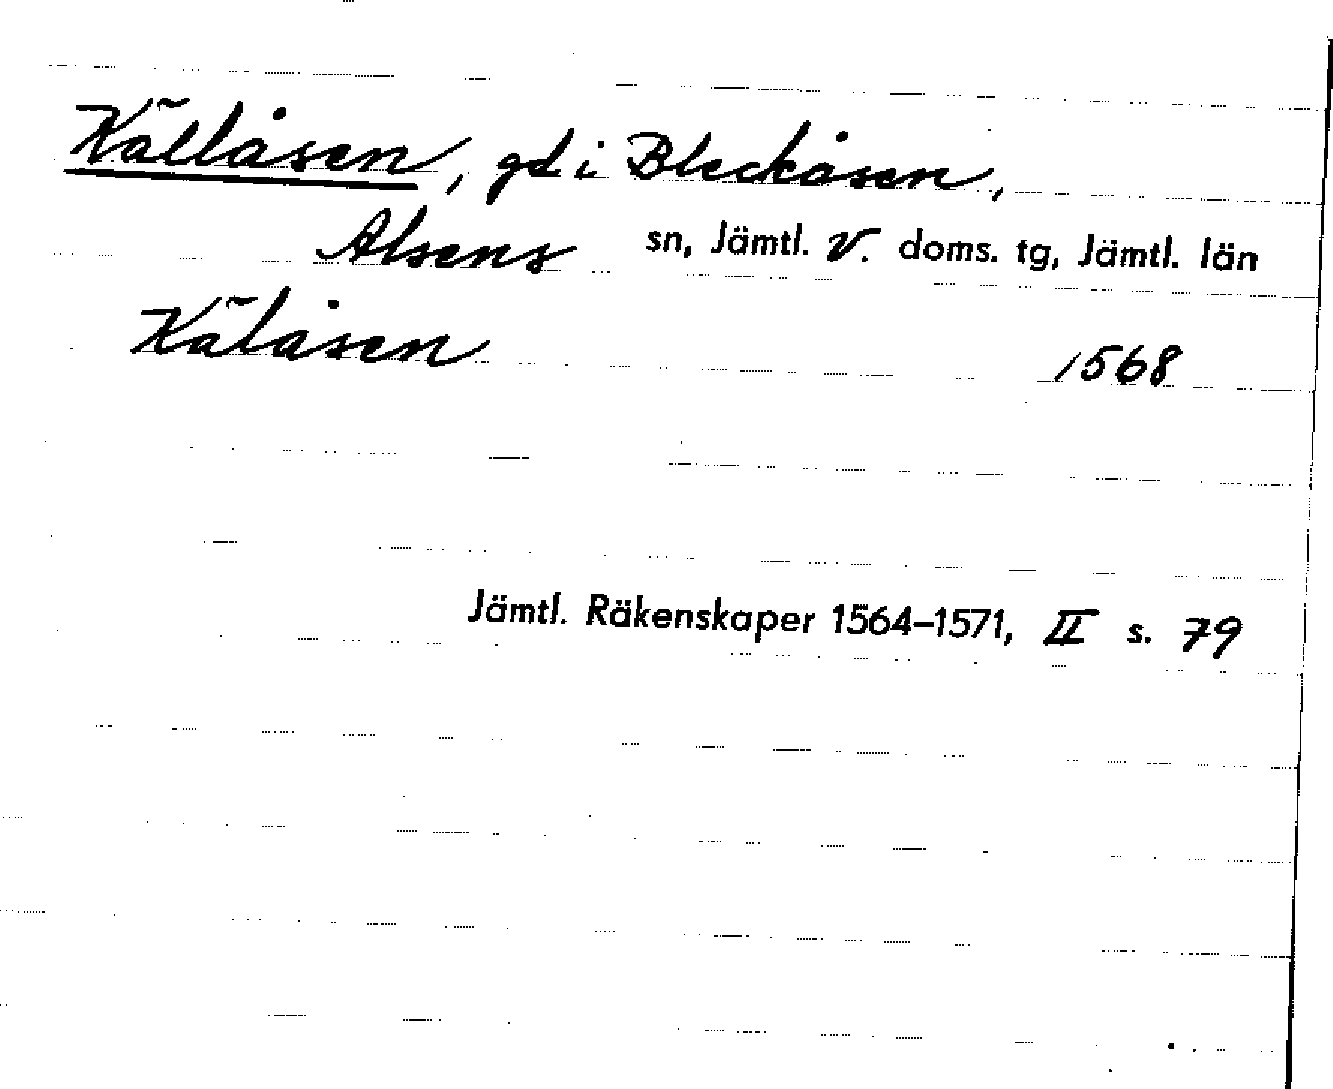 Källåsen, gd i Bleckåsen,
Alsens sn, Jämtl. v. doms. tg, Jämtl. län
Kälåsen 1568
Jämtl. Räkenskaper 1564–1571, II s. 79